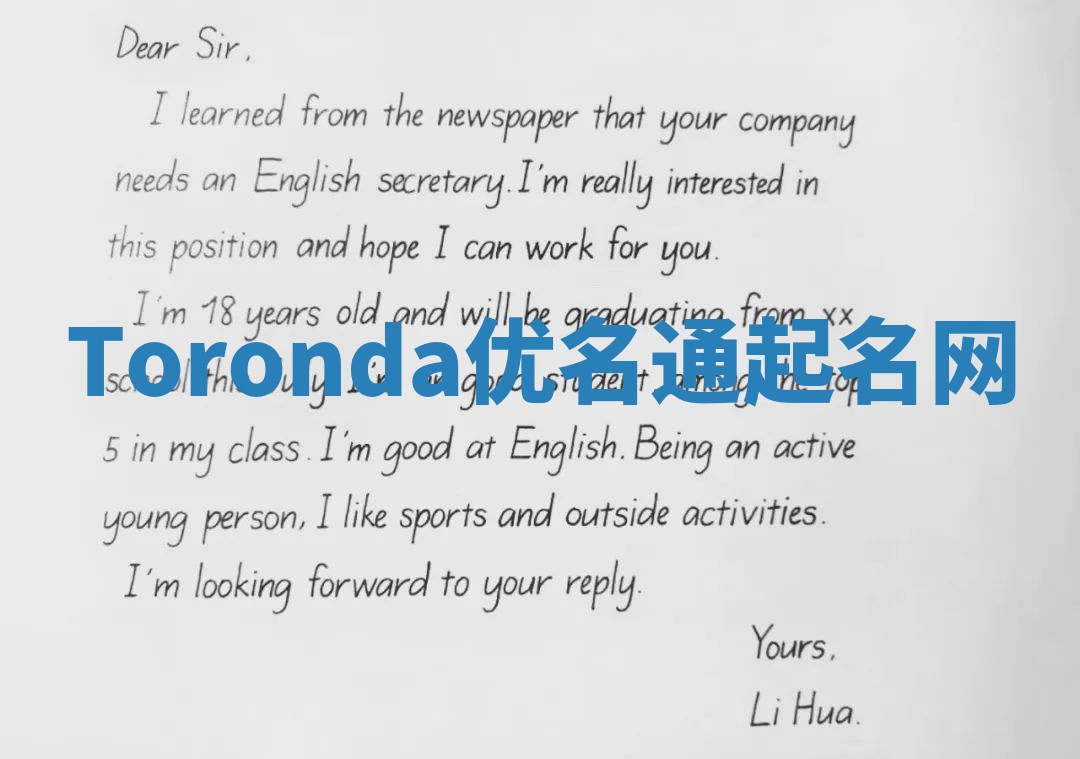 Dear Sir,
I learned from the newspaper that your company
needs an English secretary. I'm really interested in
this position and hope I can work for you.
I'm 18 years old and will be graduating from xx
Toronda优名通起名网
school this July. I'm good student, among the top
5 in my class. I'm good at English. Being an active
young person, I like sports and outside activities.
I'm looking forward to your reply.
Yours,
Li Hua.